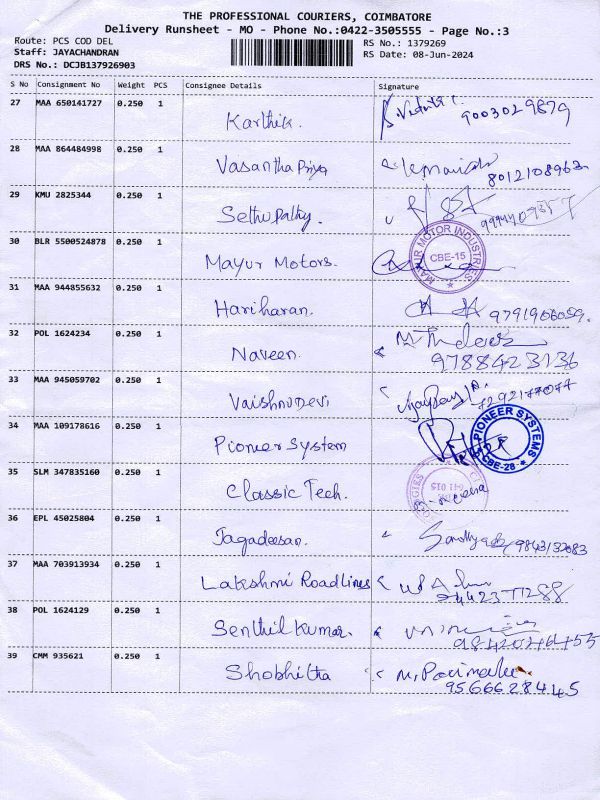 THE PROFESSIONAL COURIERS, COIMBATORE
Delivery Runsheet - MO - Phone No.:0422-3505555 - Page No.:3
Route: PCS COD DEL
RS No.: 1379269
Staff: JAYACHANDRAN
RS Date: 08-Jun-2024
DRS No.: DCJB137926903
S No Consignment No Weight PCS Consignee Details Signature
27 MAA 650141727 0.250 1 Karthik. 9003029879
28 MAA 864484998 0.250 1 Vasantha Priya 8012108963
29 KMU 2825344 0.250 1 Sethu Pathy.
30 BLR 5500524878 0.250 1 Mayur Motors.
MAYUR MOTOR INDUSTRIES
CBE-15
31 MAA 944855632 0.250 1 Hariharan. 9791906059.
32 POL 1624234 0.250 1 Naveen. 9788423136
33 MAA 945059702 0.250 1 Vaishnu Devi
34 MAA 109178616 0.250 1 Pioneer System
PIONEER SYSTEMS
CBE-28
35 SLM 347835160 0.250 1 Classic Tech.
641 015
36 EPL 45025804 0.250 1 Jagadeesan. 9843132083
37 MAA 703913934 0.250 1 Lakshmi Roadlines
38 POL 1624129 0.250 1 Senthil Kumar.
39 CMM 935621 0.250 1 Shobhitha
9566628445